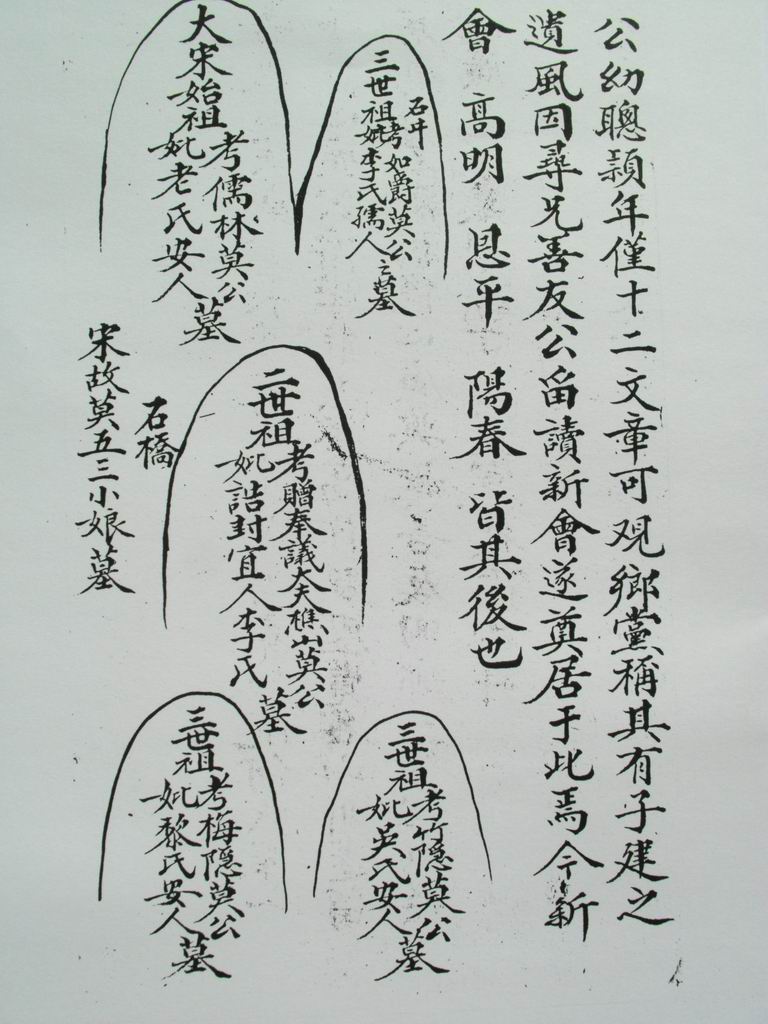 公幼聰穎年僅十二文章可观鄉黨稱其有子建之
遺風因尋兄善友公畱讀新會遂奠居于此焉今新
會 高明 恩平 陽春 皆其後也
石井
三世祖考如爵莫公之墓
妣李氏孺人
大宋始祖考儒林莫公墓
妣老氏安人
二世祖考贈奉議大夫樵山莫公墓
妣誥封宜人李氏
石橋
宋故莫五三小娘墓
三世祖考竹隱莫公墓
妣吳氏安人
三世祖考梅隱莫公墓
妣黎氏安人